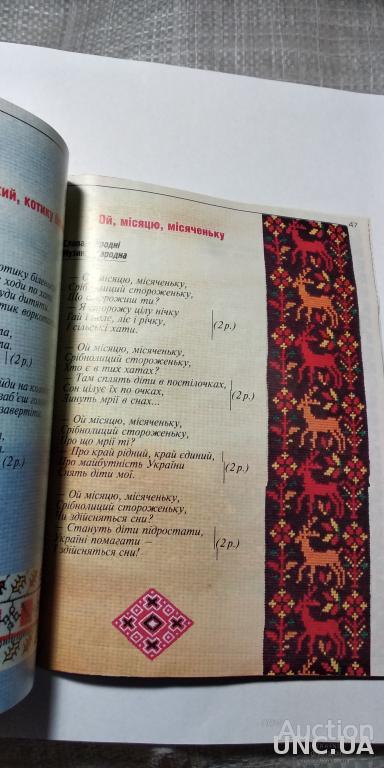 кий, котику
отику біленьк
ходи по хат
уди дитят
тик ворко
(2 р.)
йди на кол
заб'єш гол
завертіт
(2 р.)
47
Ой, місяцю, місяченьку
Слова народні
Музика народна
— Ой місяцю, місяченьку,
Срібнолиций стороженьку,
Що сторожиш ти?
— Я сторожу цілу нічку
Гай і поле, ліс і річку,
І сільські хати.
(2 р.)
Ой місяцю, місяченьку,
Срібнолиций стороженьку,
Хто є в тих хатах?
— Там сплять діти в постілочках,
Сон цілує їх по очках,
Линуть мрії в снах...
(2 р.)
Ой місяцю, місяченьку,
Срібнолиций стороженьку,
Про що мрії ті?
— Про край рідний, край єдиний,
Про майбутність України
Снять діти мої.
(2 р.)
— Ой місяцю, місяченьку,
Срібнолиций стороженьку,
Чи здійсняться сни?
— Стануть діти підростати,
Україні помагати —
І здійсняться сни!
(2 р.)
Auction
UNC.UA